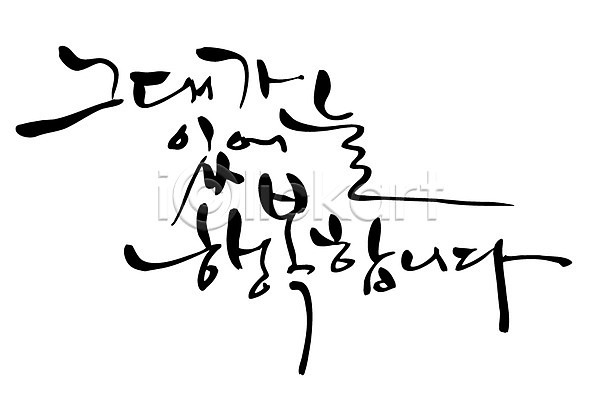 그대가
있어 늘
행복합니다
iclickart